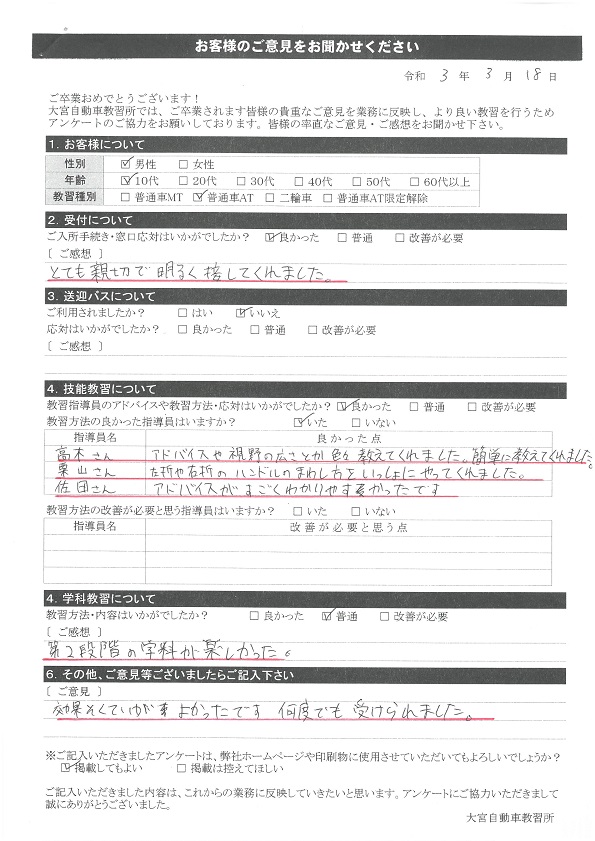 お客様のご意見をお聞かせください
令和 3 年 3 月 18 日
ご卒業おめでとうございます!
大宮自動車教習所では、ご卒業されます皆様の貴重なご意見を業務に反映し、より良い教習を行うため
アンケートのご協力をお願いしております。皆様の率直なご意見・ご感想をお聞かせ下さい。
1. お客様について
性別 ☑男性 □女性
年齢 ☑10代 □20代 □30代 □40代 □50代 □60代以上
教習種別 □普通車MT ☑普通車AT □二輪車 □普通車AT限定解除
2. 受付について
ご入所手続き・窓口応対はいかがでしたか? ☑良かった □普通 □改善が必要
[ ご感想 ]
とても親切で明るく接してくれました。
3. 送迎バスについて
ご利用されましたか? □はい ☑いいえ
応対はいかがでしたか? □良かった □普通 □改善が必要
[ ご感想 ]
4. 技能教習について
教習指導員のアドバイスや教習方法・応対はいかがでしたか? ☑良かった □普通 □改善が必要
教習方法の良かった指導員はいますか? ☑いた □いない
指導員名 良かった点
高木さん アドバイスや視野の広さとか色々教えてくれました。簡単に教えてくれました。
栗山さん 左折や右折のハンドルのまわし方をいっしょにやってくれました。
佐田さん アドバイスがすごくわかりやすかったです
教習方法の改善が必要と思う指導員はいますか? □いた □いない
指導員名 改善が必要と思う点
4. 学科教習について
教習方法・内容はいかがでしたか? □良かった ☑普通 □改善が必要
[ ご感想 ]
第2段階の学科が楽しかった。
6. その他、ご意見等ございましたらご記入下さい
[ ご意見 ]
効果そくていがよかったです 何度でも受けられました。
※ご記入いただきましたアンケートは、弊社ホームページや印刷物に使用させていただいてもよろしいでしょうか?
☑掲載してもよい □掲載は控えてほしい
ご記入いただきました内容は、これからの業務に反映していきたいと思います。アンケートにご協力いただきまして
誠にありがとうございました。
大宮自動車教習所